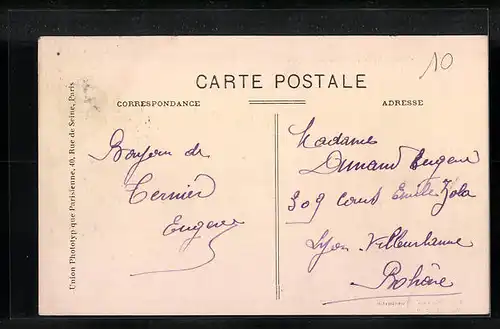 10
CARTE POSTALE
CORRESPONDANCE
ADRESSE
Union Phototypique Parisienne, 40, Rue de Seine, Paris
Bonjour de
Ternier
Eugene
Madame
Durand Eugene
309 cours Emile Zola
Lyon-Villeurbanne
Rhône